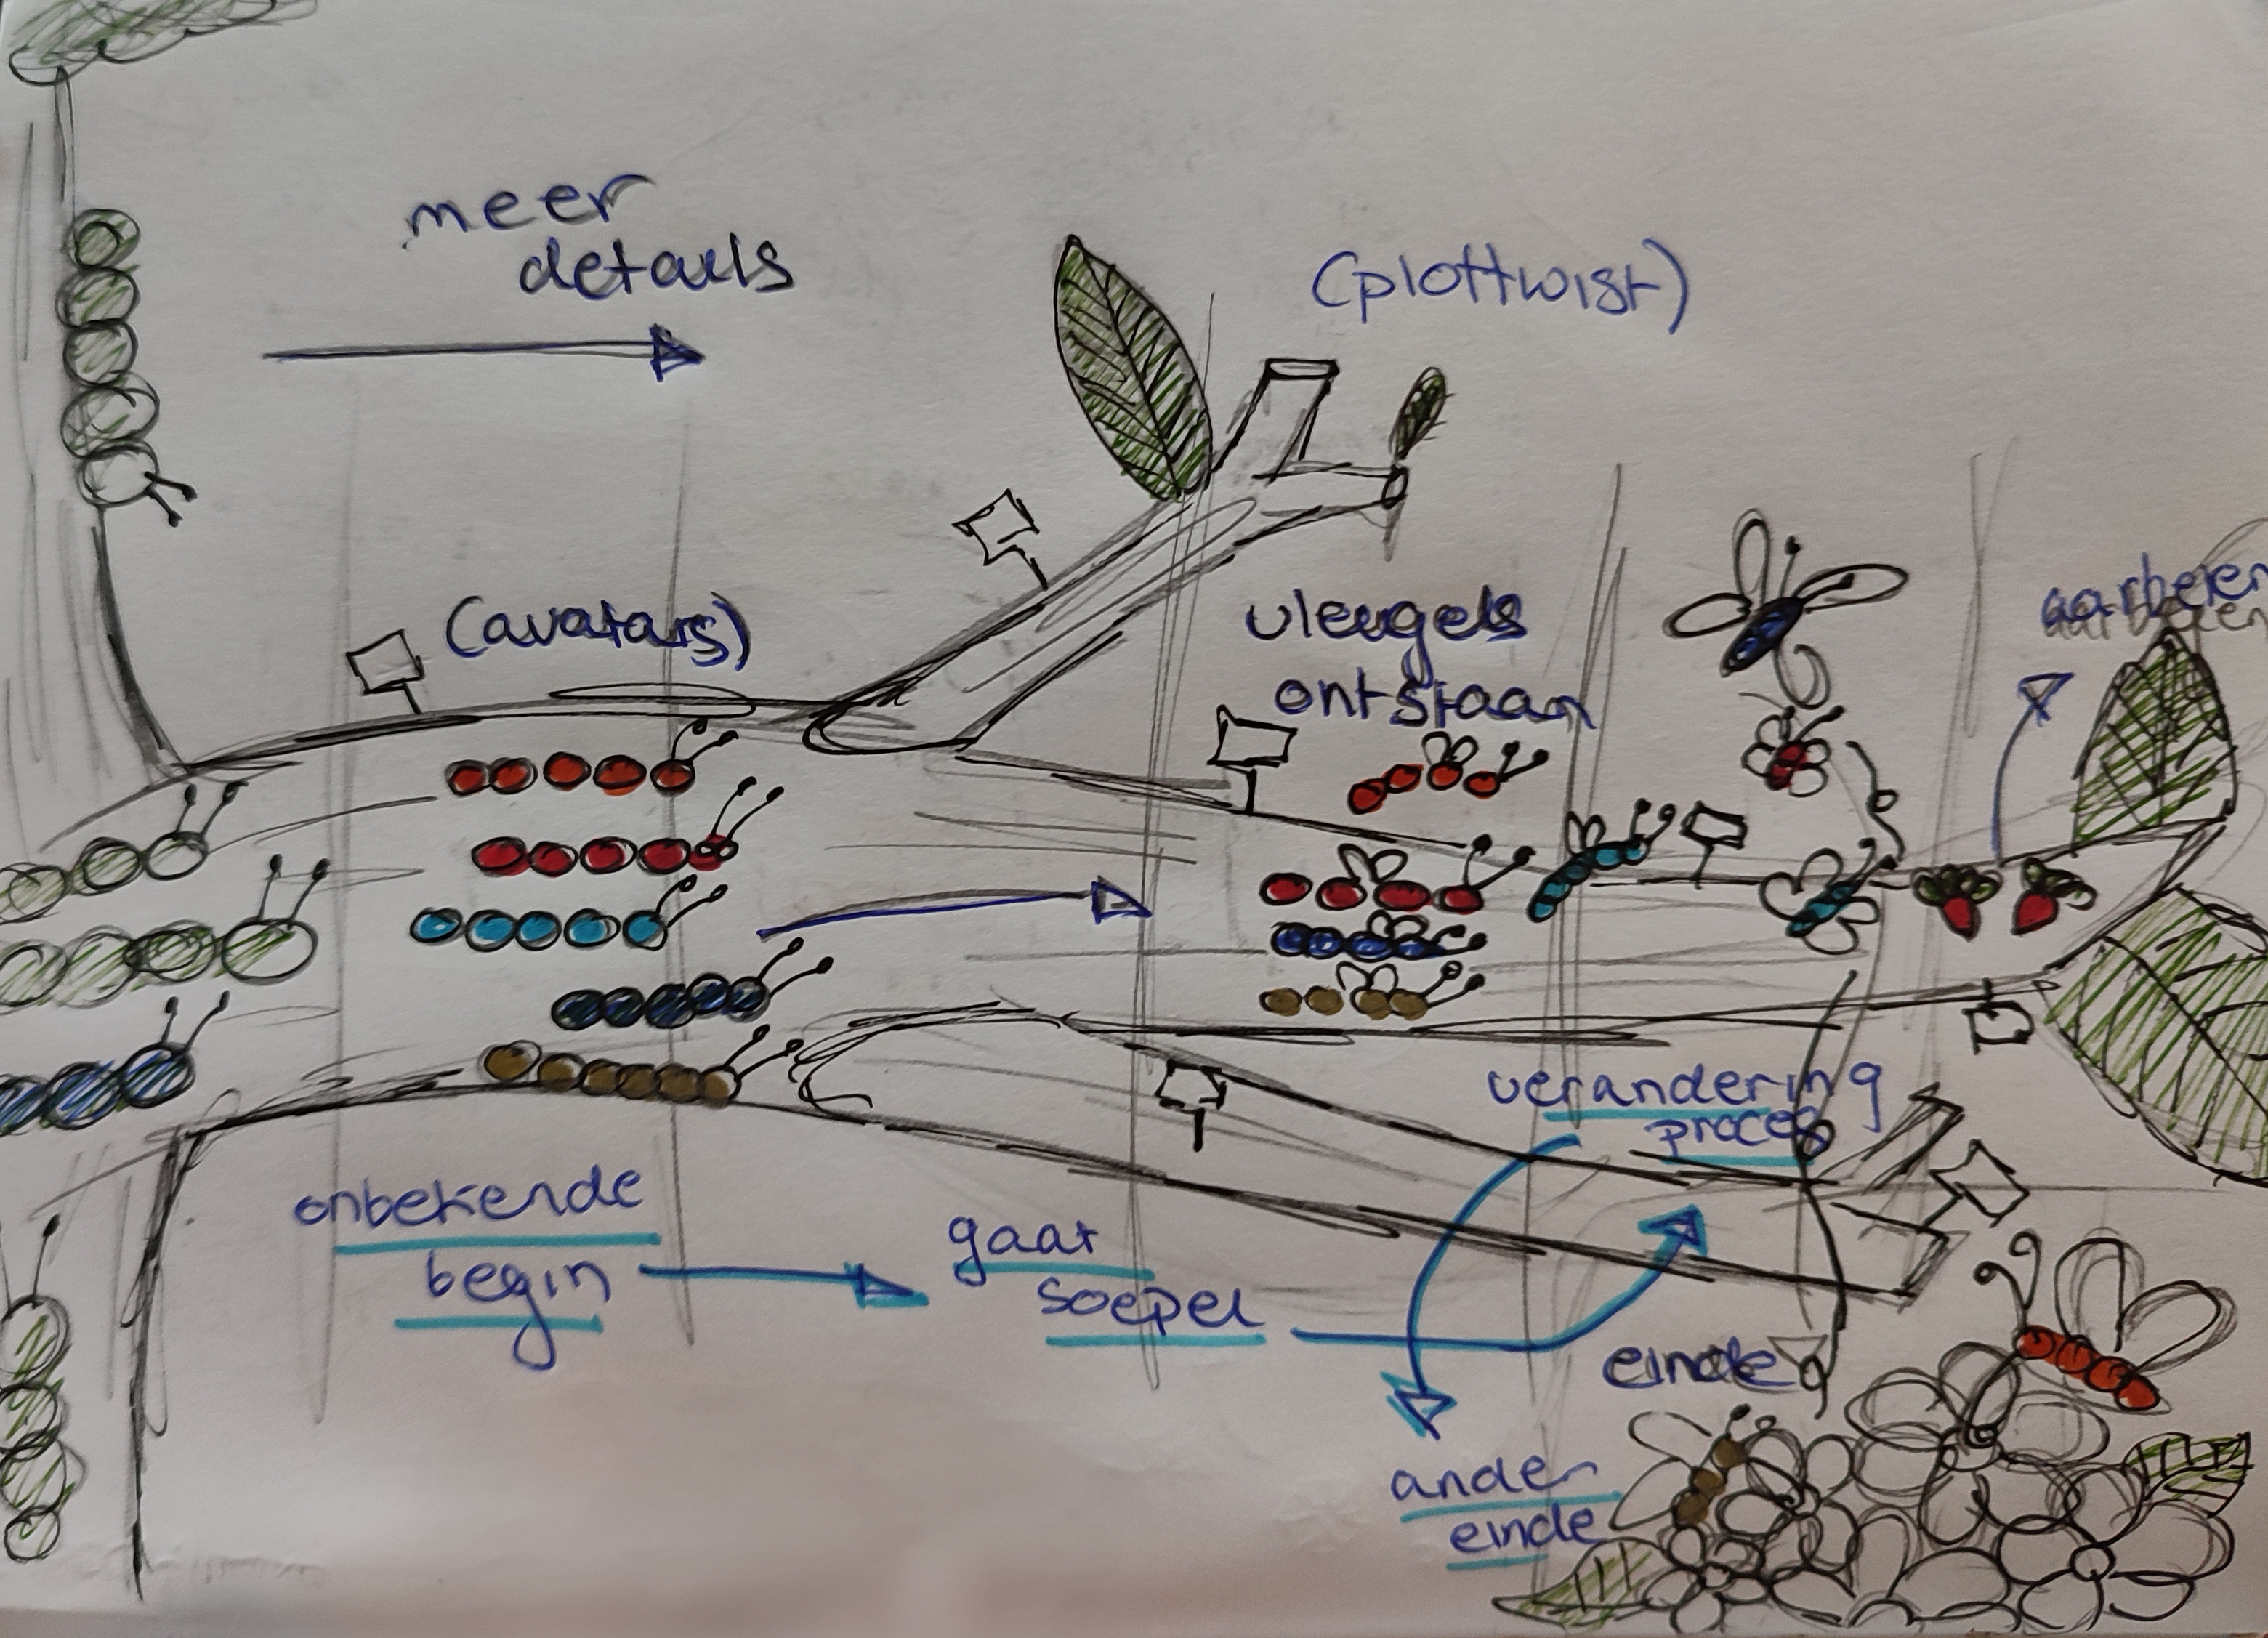 meer
details
(plottwist)
(avatars)
vleugels
ontstaan
aarbeien
verandering
proces
onbekende
begin
gaat
soepel
einde
ander
einde